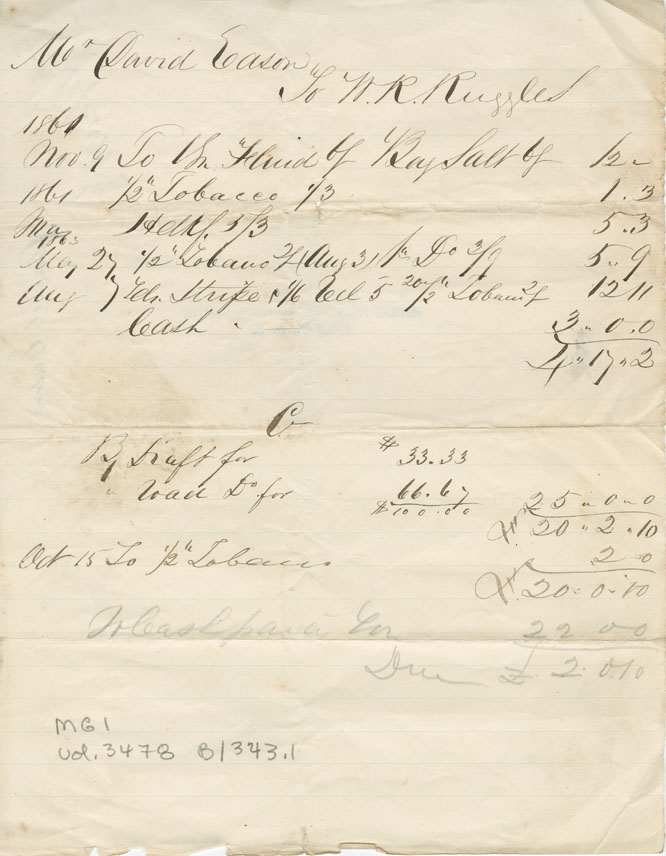 Mr David Eason
To W. R. Ruggles
1861
Nov. 9 To Fluid Bag Salt 12 -
1861 1/2" Tobacco 1/3 1.3
May Hdkf. 5/3 5.3
1863
May 27 1/2" Tobacco 2/ (Aug 31 Do 3/9 5.9
Aug 7 Stripe 1/6 5 1/2" Tobacco 2/ 12 11
Cash 3 " 0 . 0
4 " 17 " 2
Cr
By Draft for $ 33.33
" Do for 66.67
$ 100.00 25 " 0 " 0
20 " 2 " 10
Oct 15 To 1/2" Tobacco 2 0
20 " 0 " 10
To Cash paid 22 00
Due £ 2.0.10
MG1
Vol. 3478 B/343.1